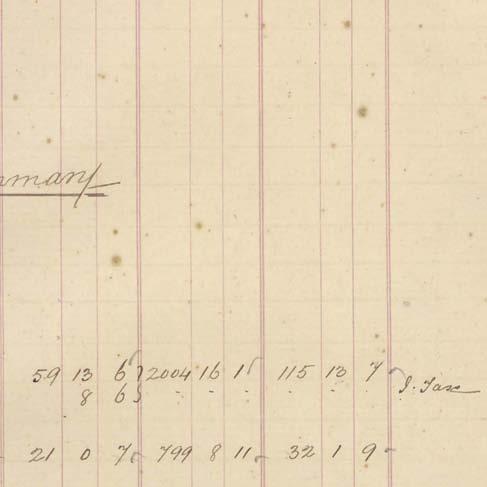 mmary
59 13 6 } 2004 16 1 115 13 7
8 6 } . . . . . . I. Tax
21 0 7 799 8 11 32 1 9